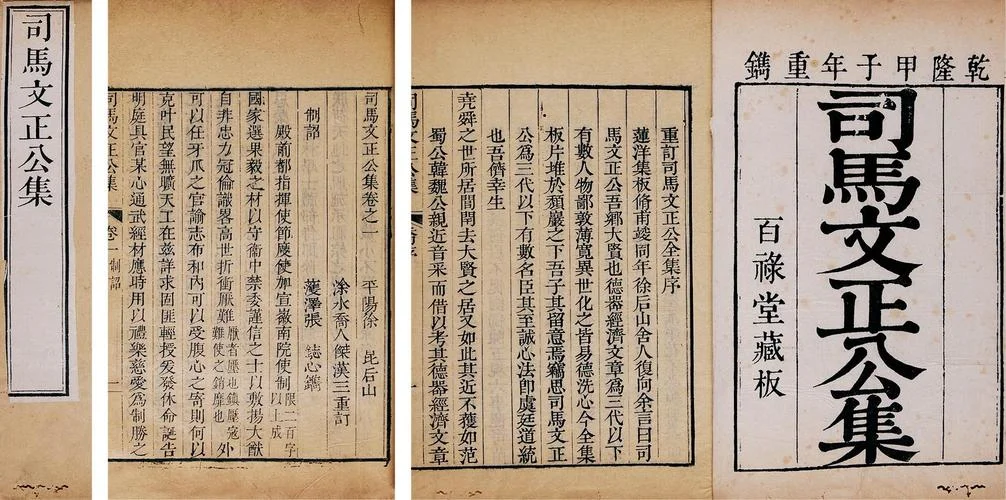 乾隆甲子年重鐫
司馬文正公集
百祿堂藏板
重訂司馬文正公全集序
蓮洋集板脩甫竣同年徐后山舍人復向余言曰司
馬文正公吾鄉大賢也德器經濟文章爲三代以下
有數人物鄙敦薄寬異世化之皆易德洗心今全集
板片堆於頹巖之下吾子其留意焉竊思司馬文正
公爲三代以下有數名臣其至誠心法卽虞廷道統
也吾儕幸生
堯舜之世所居間閈去大賢之居又如此其近不獲如范
蜀公韓魏公親近音采而借以考其德器經濟文章
司馬文正公集卷之一 平陽徐 昆后山
涑水喬人傑漢三重訂
制詔 張 鐫
殿前都指揮使節度使加宣徽南院使制 限二百字以上成
國家選果毅之材以守衞中禁委謹信之士以敷揚大猷
自非忠力冠倫識畧高世折衝厭難 厭者壓也鎮壓寇難使之銷靡也 外
可以任牙爪之官諭志布和內可以受腹心之寄則何以
克叶民望無曠天工在兹詳求固匪輕授爰發休命誕告
明庭具官某心通武經材應時用以禮樂慈愛爲制勝之
司馬文正公集 卷一 制詔 一
司馬文正公集